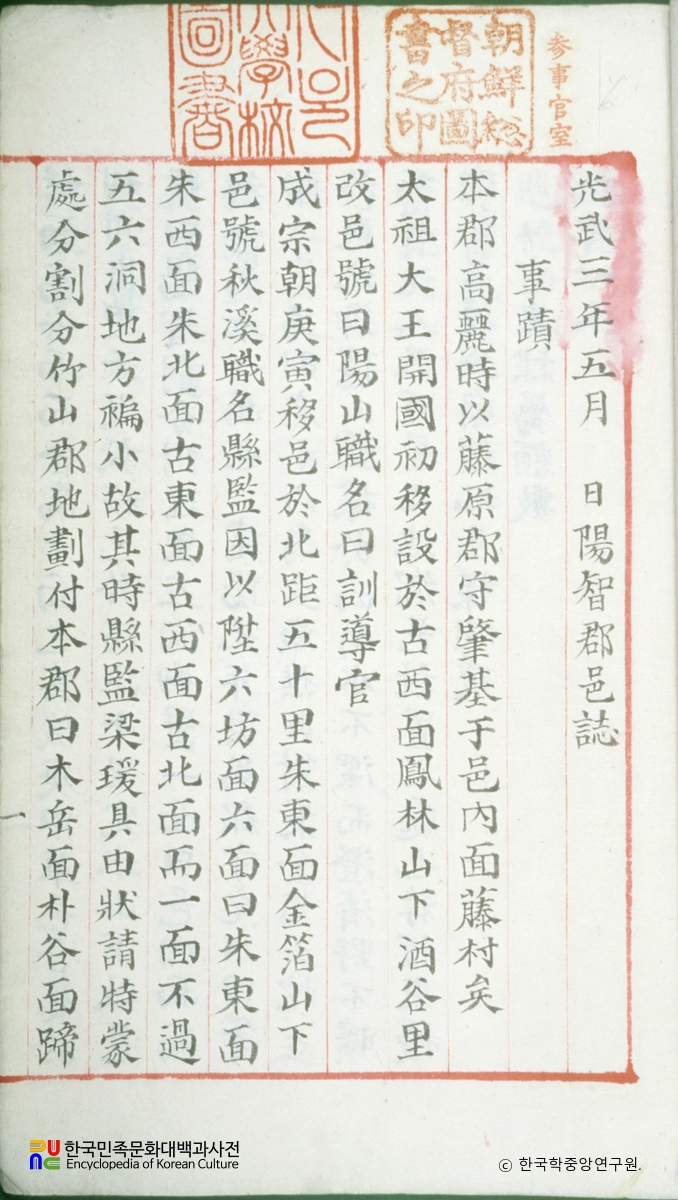 參事官室
朝鮮総
督府圖
書之印
大學校
圖書
光武三年五月 日陽智郡邑誌
事蹟
本郡高麗時以藤原郡守肇基于邑內面藤村矣
太祖大王開國初移設於古西面鳳林山下酒谷里
改邑號曰陽山職名曰訓導官
成宗朝庚寅移邑於北距五十里朱東面金箔山下
邑號秋溪職名縣監因以陞六坊面六面曰朱東面
朱西面朱北面古東面古西面古北面而一面不過
五六洞地方褊小故其時縣監梁瑗具由狀請特蒙
處分割分竹山郡地劃付本郡曰木岳面朴谷面蹄
一
한국민족문화대백과사전
Encyclopedia of Korean Culture
© 한국학중앙연구원.